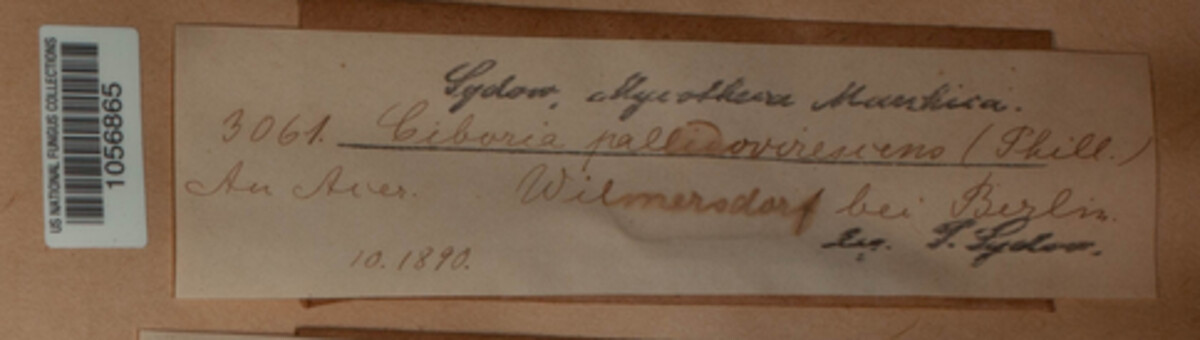 US NATIONAL FUNGUS COLLECTIONS
1056865
Sydow, Mycotheca Marchica.
3061. Ciboria pallidovirescens (Phill.)
An Acer. Wilmersdorf bei Berlin.
leg. P. Sydow.
10.1890.